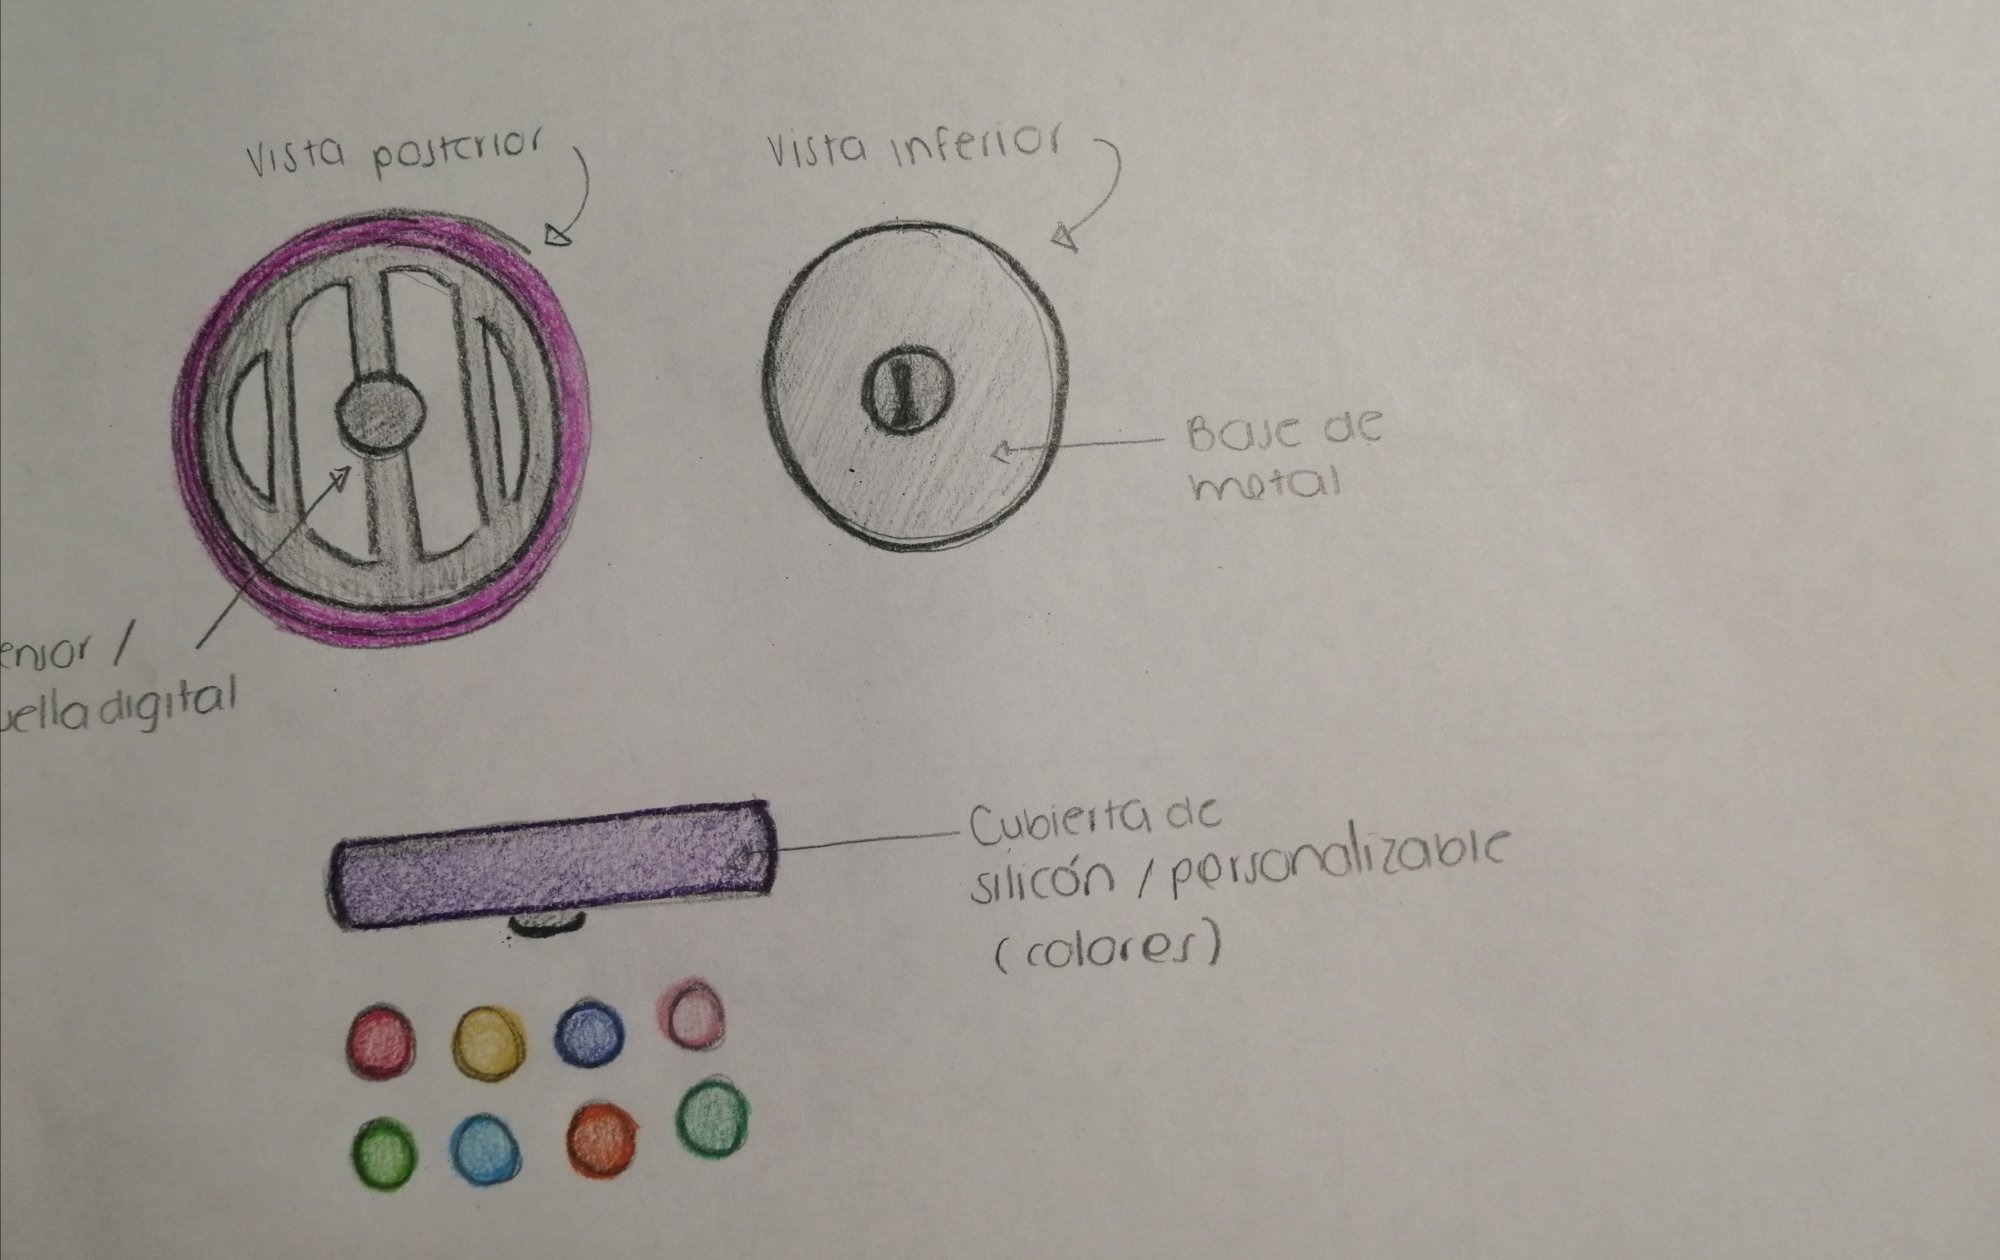 Vista posterior
Vista inferior
Base de
metal
ensor /
uella digital
Cubierta de
silicón / personalizable
(colores)